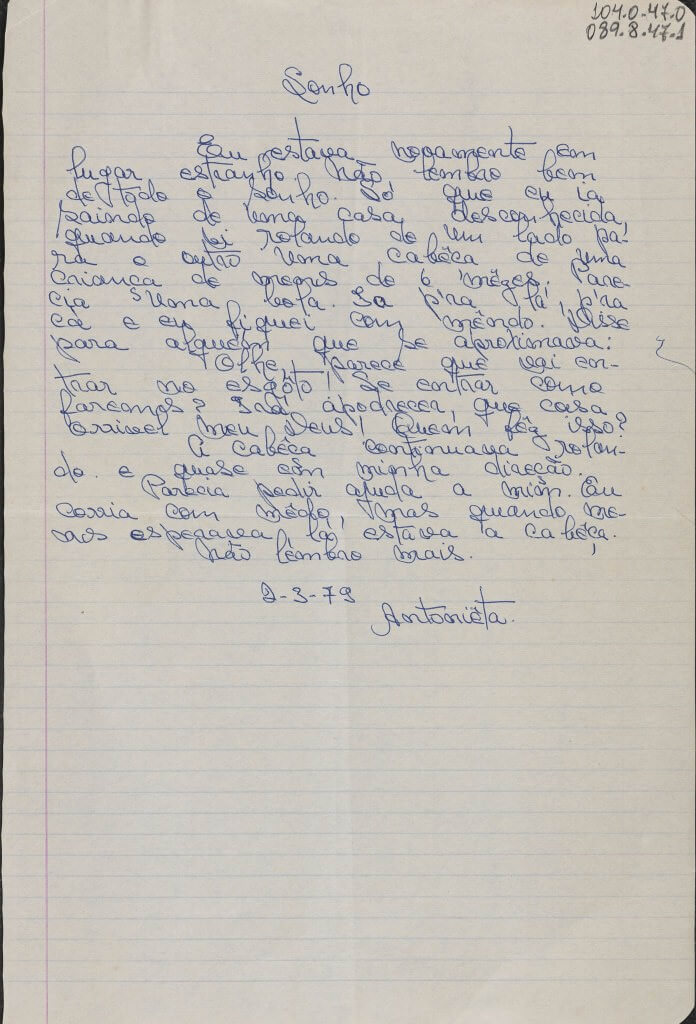 104.0-47.0
089.8.47-1
Sonho
Eu estava novamente em
lugar estranho. Não lembro bem
de todo o sonho. Só que eu ia
saindo de uma casa desconhecida,
quando vi rolando de um lado pa-
ra o outro uma cabêça de uma
criança de menos de 6 mêzes. Pare-
cia uma bola. Ia p'ra lá, p'ra
cá e eu fiquei com mêdo. Disse
para alguém que se aproximava:
Olhe, parece que vai en-
trar no esgôto! Se entrar como
faremos? Irá apodrecer, que coisa
orrivel meu Deus! Quem fêz isso?
A cabêça continuava rolan-
do e quase em minha direcção.
Parecia pedir ajuda a mim. Eu
corria com mêdo, mas quando me-
nos esperava lá estava a cabêça.
Não lembro mais.
2-3-79
Antoniêta.